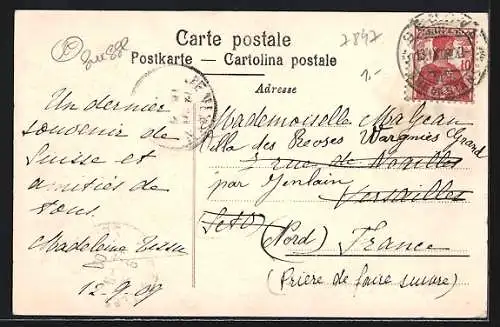 Carte postale
Postkarte — Cartolina postale
Adresse
2847
1.-
10
Un dernier
souvenir de
Suisse et
amitiés de
tous.
Madeleine
12-9.09
Mademoiselle
Villa des Roses Wargnies Grand
rue de Noailles
par Jenlain Versailles
(Nord) France
(Prière de faire suivre)